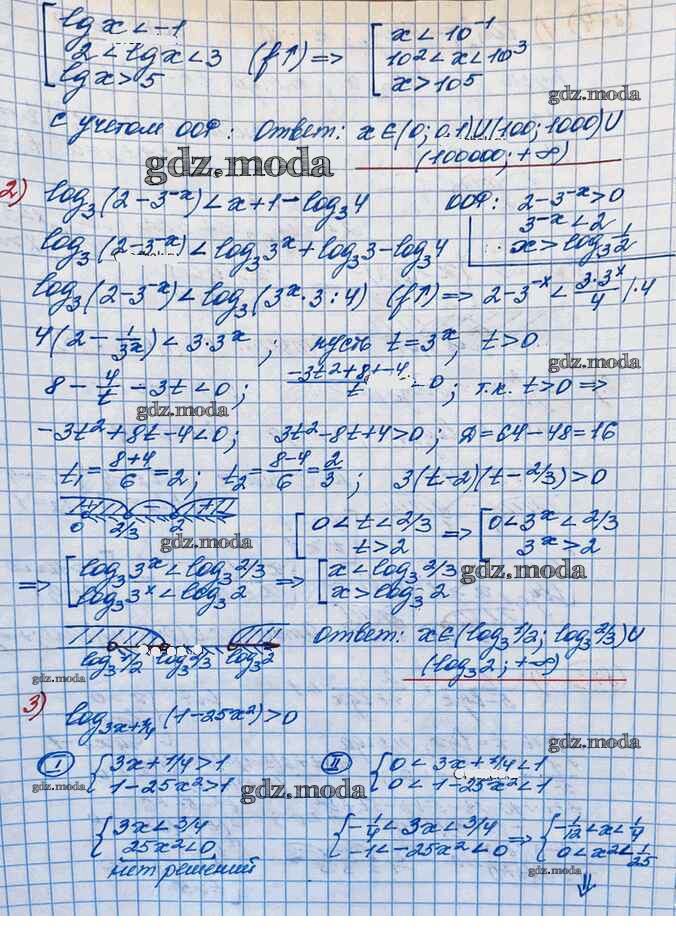 [ lg x < -1
2 < lg x < 3 (f↑) =>
lg x > 5
[ x < 10⁻¹
10² < x < 10³
x > 10⁵
gdz.moda
с учетом ООФ: Ответ: x ∈ (0; 0.1) U (100; 1000) U
(100000; +∞)
gdz.moda
2) log₃(2-3⁻ˣ) < x+1-log₃4
ООФ: 2-3⁻ˣ > 0
3⁻ˣ < 2
x > log₃ 1/2
log₃(2-3⁻ˣ) < log₃3ˣ + log₃3 - log₃4
log₃(2-3⁻ˣ) < log₃(3ˣ·3:4) (f↑) => 2-3⁻ˣ < 3·3ˣ/4 |·4
4(2 - 1/3ˣ) < 3·3ˣ ; пусть t=3ˣ, t>0
gdz.moda
8 - 4/t - 3t < 0; (-3t²+8t-4)/t < 0; т.к. t>0 =>
gdz.moda
-3t²+8t-4<0; 3t²-8t+4>0; D=64-48=16
t₁ = (8+4)/6 = 2; t₂ = (8-4)/6 = 2/3; 3(t-2)(t-2/3)>0
+ - +
0 2/3 2
[ 0<t<2/3
t>2
=> [ 0<3ˣ<2/3
3ˣ>2
gdz.moda
=> [ log₃3ˣ < log₃2/3
log₃3ˣ < log₃2
=> [ x < log₃2/3
x > log₃2
gdz.moda
log₃1/2 log₃2/3 log₃2
Ответ: x ∈ (log₃1/2; log₃2/3) U
(log₃2; +∞)
gdz.moda
gdz.moda
3) log₃ₓ₊₁/₄(1-25x²)>0
gdz.moda
I { 3x+1/4>1
1-25x²>1
II { 0<3x+1/4<1
0<1-25x²<1
gdz.moda
gdz.moda
gdz.moda
{ 3x<3/4
25x²<0
нет решений
{ -1/4<3x<3/4
-1<-25x²<0
=> { -1/12<x<1/4
0<x²<1/25
⇓